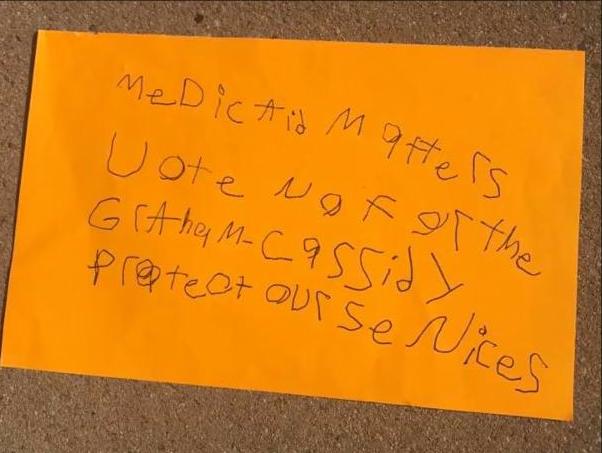 MeDicAid Matters
Vote No For the
GrAhaM-Cassidy
Protect our serVices